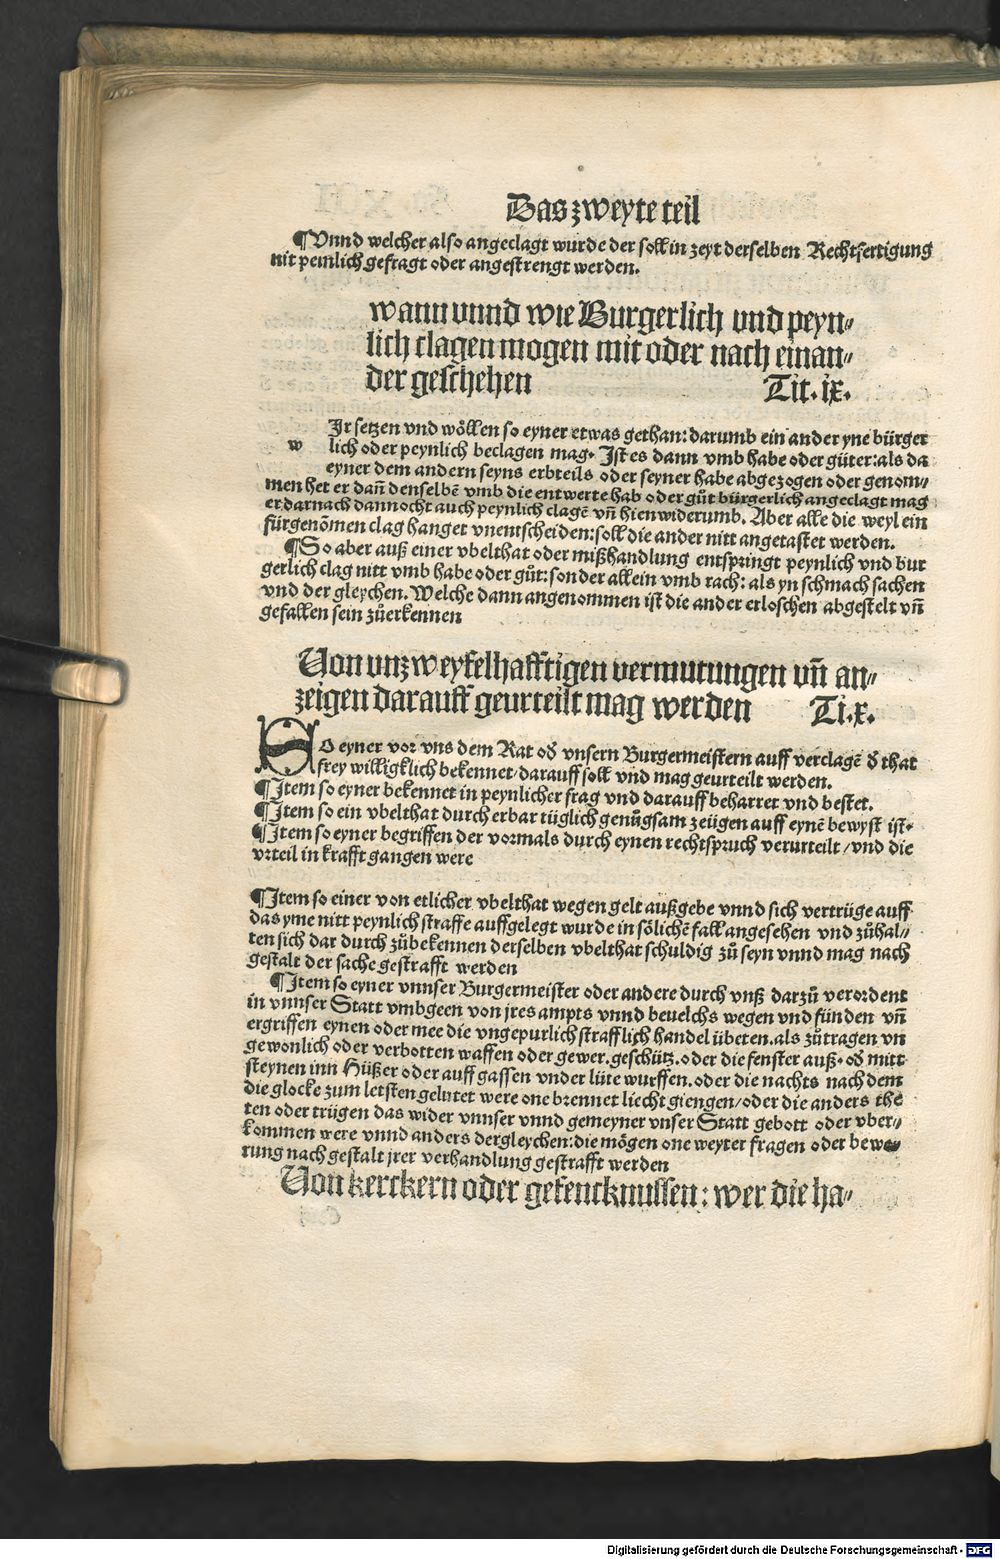 Das zweyte teil
¶Vnnd welcher also angeclagt wurde der soll in zeyt derselben Rechtfertigung
nit peinlich gefragt oder angestrengt werden.
wann vnnd wie Burgerlich vnd peyn⸗
lich clagen mogen mit oder nach einan⸗
der geschehen Tit. ix.
w Jr setzen vnd wöllen so eyner etwas gethan: darumb ein ander yne bürger
lich oder peynlich beclagen mag. Jst es dann vmb habe oder güter: als da
eyner dem andern seyns erbteils oder seyner habe abgezogen oder genom⸗
men het er dañ denselbē vmb die entwerte hab oder gůt bürgerlich angeclagt mag
er darnach dannocht auch peynlich clagē vñ hienwiderumb. Aber alle die weyl ein
fürgenōmen clag hanget vnentscheiden: soll die ander nitt angetastet werden.
¶So aber auß einer vbelthat oder mißhandlung entspringt peynlich vnd bur
gerlich clag nitt vmb habe oder gůt: sonder allein vmb rach: als yn schmach sachen
vnd der gleychen. Welche dann angenommen ist die ander erloschen abgestelt vñ
gefallen sein zůerkennen
Von vnzweyfelhafftigen vermutungen vñ an⸗
zeigen darauff geurteilt mag werden Ti. x.
SO eyner vor vns dem Rat od̄ vnsern Burgermeistern auff verclagē d̄ that
frey williglich bekennet/ darauff soll vnd mag geurteilt werden.
¶Jtem so eyner bekennet in peynlicher frag vnd darauff beharret vnd bestet.
¶Jtem so ein vbelthat durch erbar tüglich genůgsam zeügen auff eynē bewyst ist.
¶Jtem so eyner begriffen der vormals durch eynen rechtspruch verurteilt/ vnd die
vrteil in krafft gangen were
¶Jtem so einer von etlicher vbelthat wegen gelt außgebe vnnd sich vertrüge auff
das yme nitt peynlich straffe auffgelegt wurde in sölichē fall angesehen vnd zůhal⸗
ten sich dar durch zůbekennen derselben vbelthat schuldig zů seyn vnnd mag nach
gestalt der sache gestrafft werden
¶Jtem so eyner vnnser Burgermeister oder andere durch vnß darzů verordent
in vnnser Statt vmbgeen von jres ampts vnnd beuelchs wegen vnd fünden vñ
ergriffen eynen oder mee die vngepurlich strafflich handel übeten. als zůtragen vn
gewonlich oder verbotten waffen oder gewer. geschütz. oder die fenster auß. od̄ mitt
steynen inn Hüßer oder auff gassen vnder lüte wurffen. oder die nachts nach dem
die glocke zum letsten gelutet were one brennet liecht giengen/ oder die anders thē
ten oder trügen das wider vnnser vnnd gemeyner vnser Statt gebott oder vber⸗
kommen were vnnd anders dergleychen: die mögen one weyter fragen oder bewe⸗
rung nach gestalt jrer verhandlung gestrafft werden
Von kerckern oder gefencknussen: wer die ha⸗
Digitalisierung gefördert durch die Deutsche Forschungsgemeinschaft - DFG